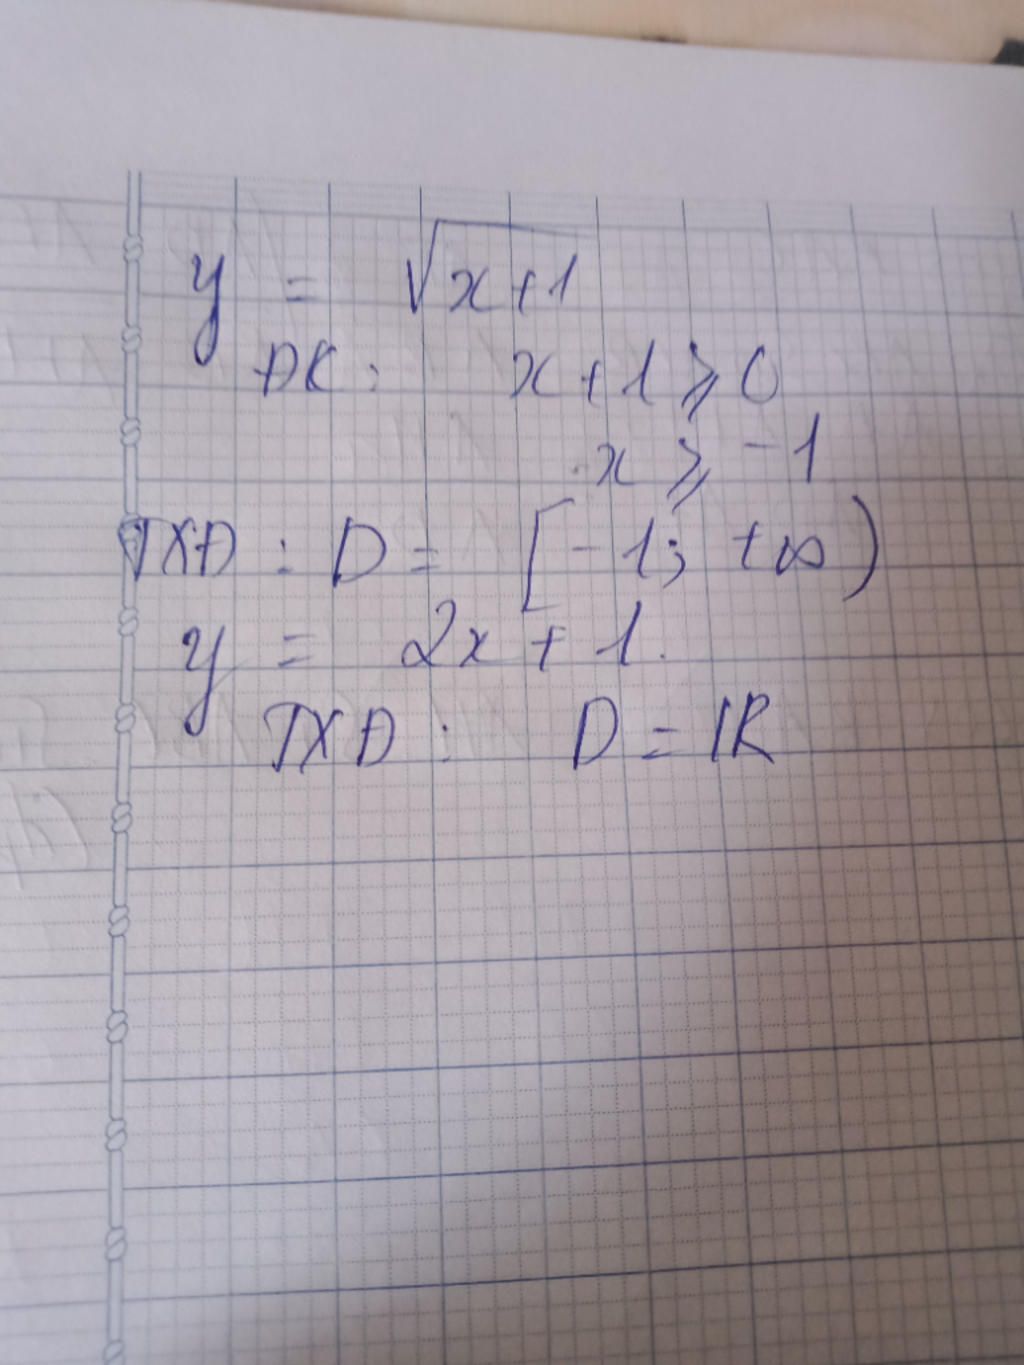 y = √x+1
ĐK: x+1 ⩾ 0
x ⩾ -1
TXĐ: D = [-1; +∞)
y = 2x + 1.
TXĐ: D = ℝ